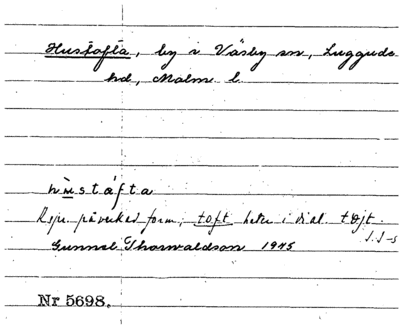 Hustofta, by i Väsby sn, Luggude
hd, Malm l.
hùstáfta
Rspr. påverkad form, toft heter i dial. tøjt.
S. J-s
Gunnel Thorwaldson 1945
Nr 5698.